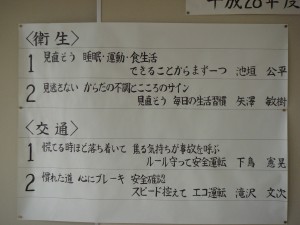 平成28年度
〈衛生〉
1 見直そう 睡眠・運動・食生活
できることからまず一つ 池垣 公平
2 見逃さない からだの不調とこころのサイン
見直そう 毎日の生活習慣 矢澤 敏樹
〈交通〉
1 慌てる時ほど落ち着いて 焦る気持ちが事故を呼ぶ
ルール守って安全運転 下鳥 憲晃
2 慣れた道 心にブレーキ 安全確認
スピード控えて エコ運転 滝沢 文次